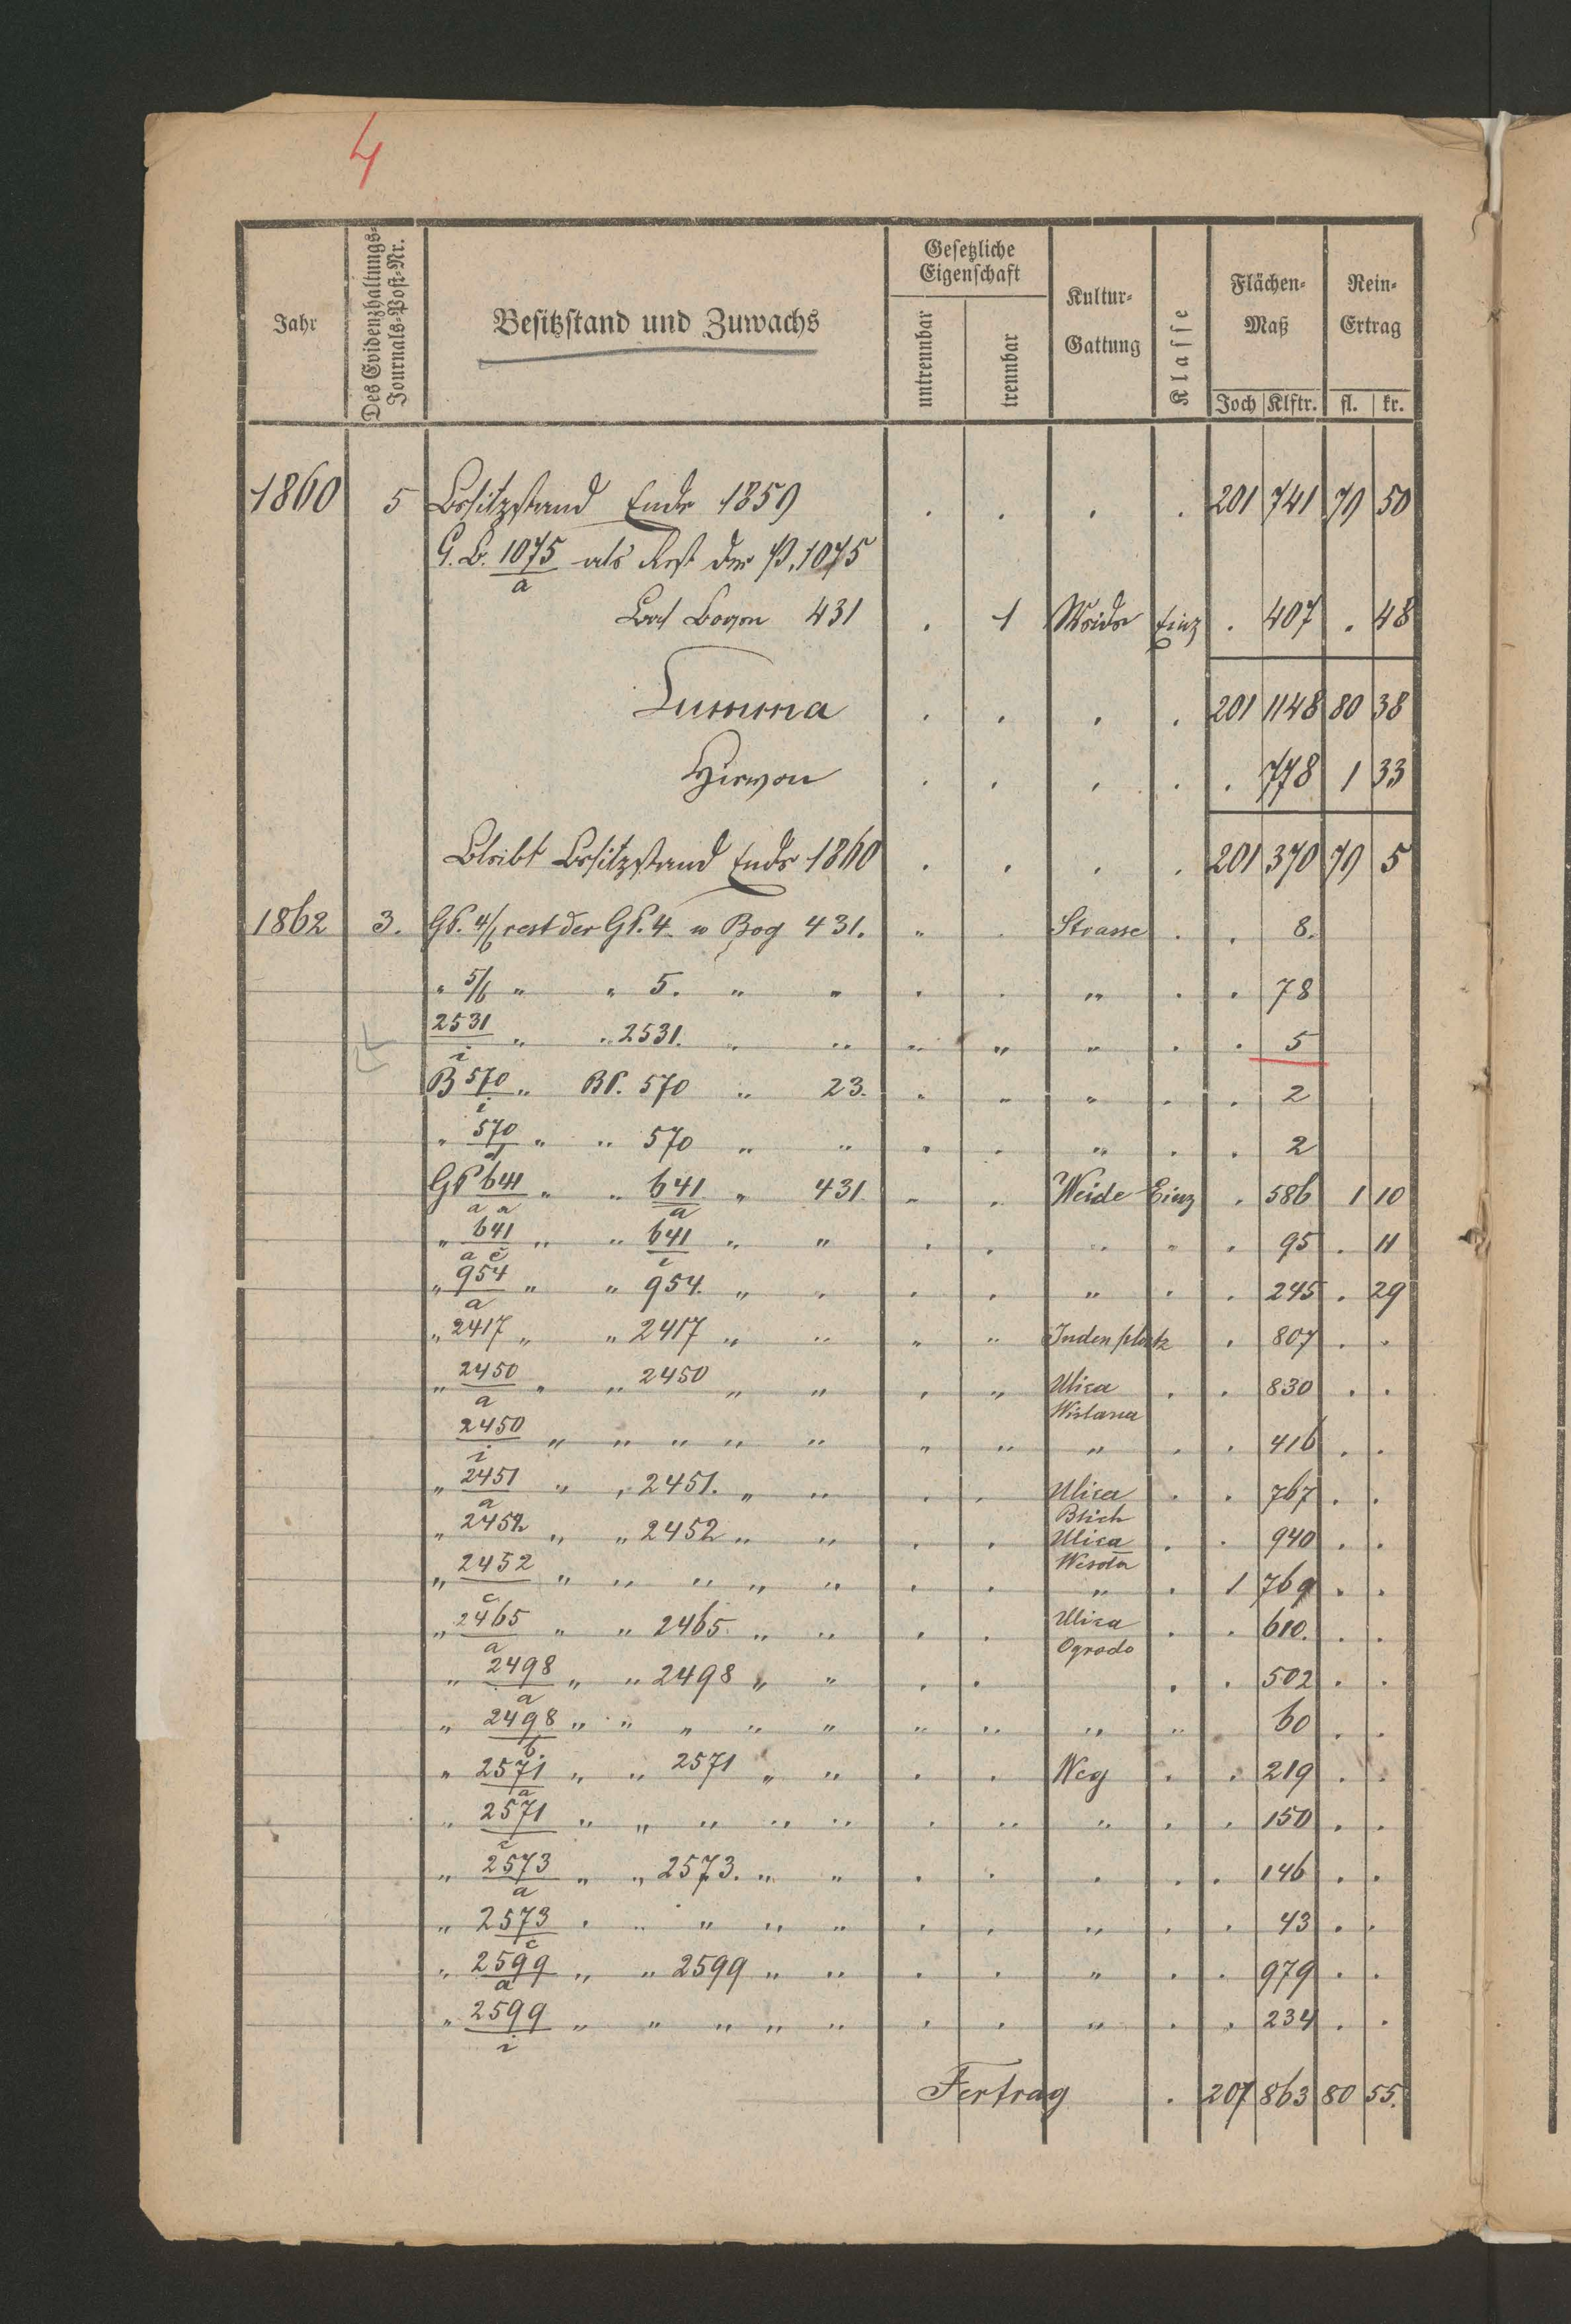 4
Jahr
Des Evidenzhaltungs-
Journals-Post-Nr.
Besitzstand und Zuwachs
Gesetzliche
Eigenschaft
untrennbar
trennbar
Kultur-
Gattung
Klasse
Flächen-
Maß
Joch Klftr.
Rein-
Ertrag
fl. kr.
1860 5 Besitzstand Ende 1859 . . . . 201 741 79 50
G.B. 1075/a als Rest der P. 1075
Bogen 431 . 1 Weide Einz . 407 . 48
Summa . . . . 201 1148 80 38
Hievon . . . . . 778 1 33
Bleibt Besitzstand Ende 1860 . . . . 201 370 79 5
1862 3. GP. 4/b rest der GP. 4. v Bog 431. " . Strasse . . 8.
" 5/b " " 5. " " . . " . . 78
2531/i " " 2531. " " " " " . . 5
B 570/i " BP. 570 " 23. " " " . . 2
" 570 " " 570 " " " . " . . 2
GP 641/a a " " 641/a " 431 " . Weide Einz . 586 1 10
" 641/a c " " 641/i " " . . " " . 95 . 11
" 954/a " " 954. " " . . " . . 245 . 29
" 2417 " " 2417 " " " " Judenplatz . 807 . .
" 2450/a " " 2450 " " . " Ulica Wislana . . 830 . .
2450/i " " " " " " " " . . 416 . .
" 2451/a " " 2451. " " . . Ulica Blich . . 767 . .
" 2452 " " 2452 " " . . Ulica Wesoła . . 940 . .
" 2452/c " " " " " . . " . 1 769 . .
" 2465/a " " 2465 " " . . Ulica Ogrodo . . 610. . .
" 2498/a " " 2498 " " . . . . 502 . .
" 2498/b " " " " " " " " " . 60 . .
" 2571/a " " 2571 " " . . Weg . . 219 . .
" 2571/c " " " " " . " " . . 150 . .
" 2573/a " " 2573. " " . . . . . 146 . .
" 2573/c " " " " " . . " . . 43 . .
" 2599/a " " 2599 " " . . " . . 979 . .
" 2599/i " " " " " . . " . . 234 . .
Fertrag . 207 863 80 55.